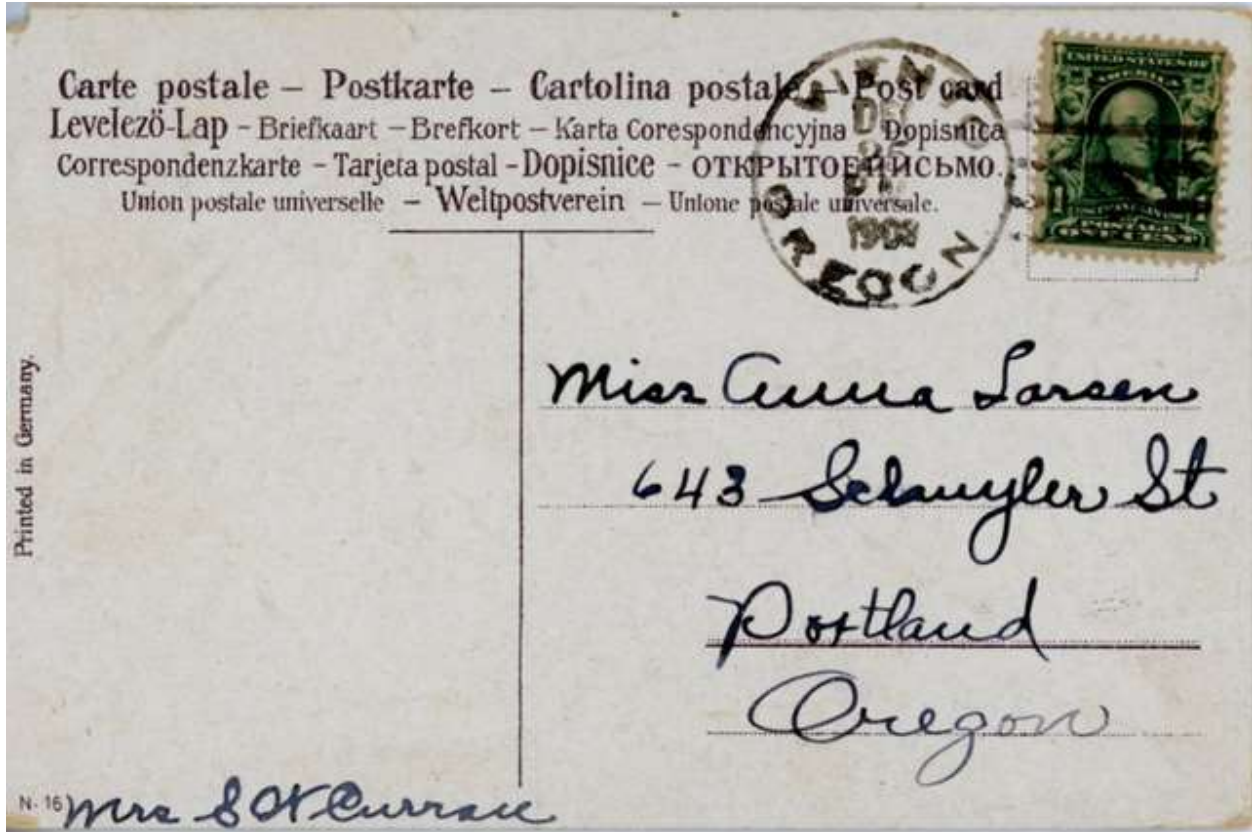 Carte postale – Postkarte – Cartolina postale – Post card
Levelező-Lap – Briefkaart – Brefkort – Karta Corespondencyjna – Dopisnica
Correspondenzkarte – Tarjeta postal – Dopisnice – ОТКРЫТОЕ ПИСЬМО.
Union postale universelle – Weltpostverein – Unione postale universale.
OREGON
UNITED STATES OF
AMERICA
1 1
POSTAGE
ONE CENT
Printed in Germany.
Miss Anna Larsen
643 Schuyler St
Portland
Oregon
N. 16
Mrs S W Curran